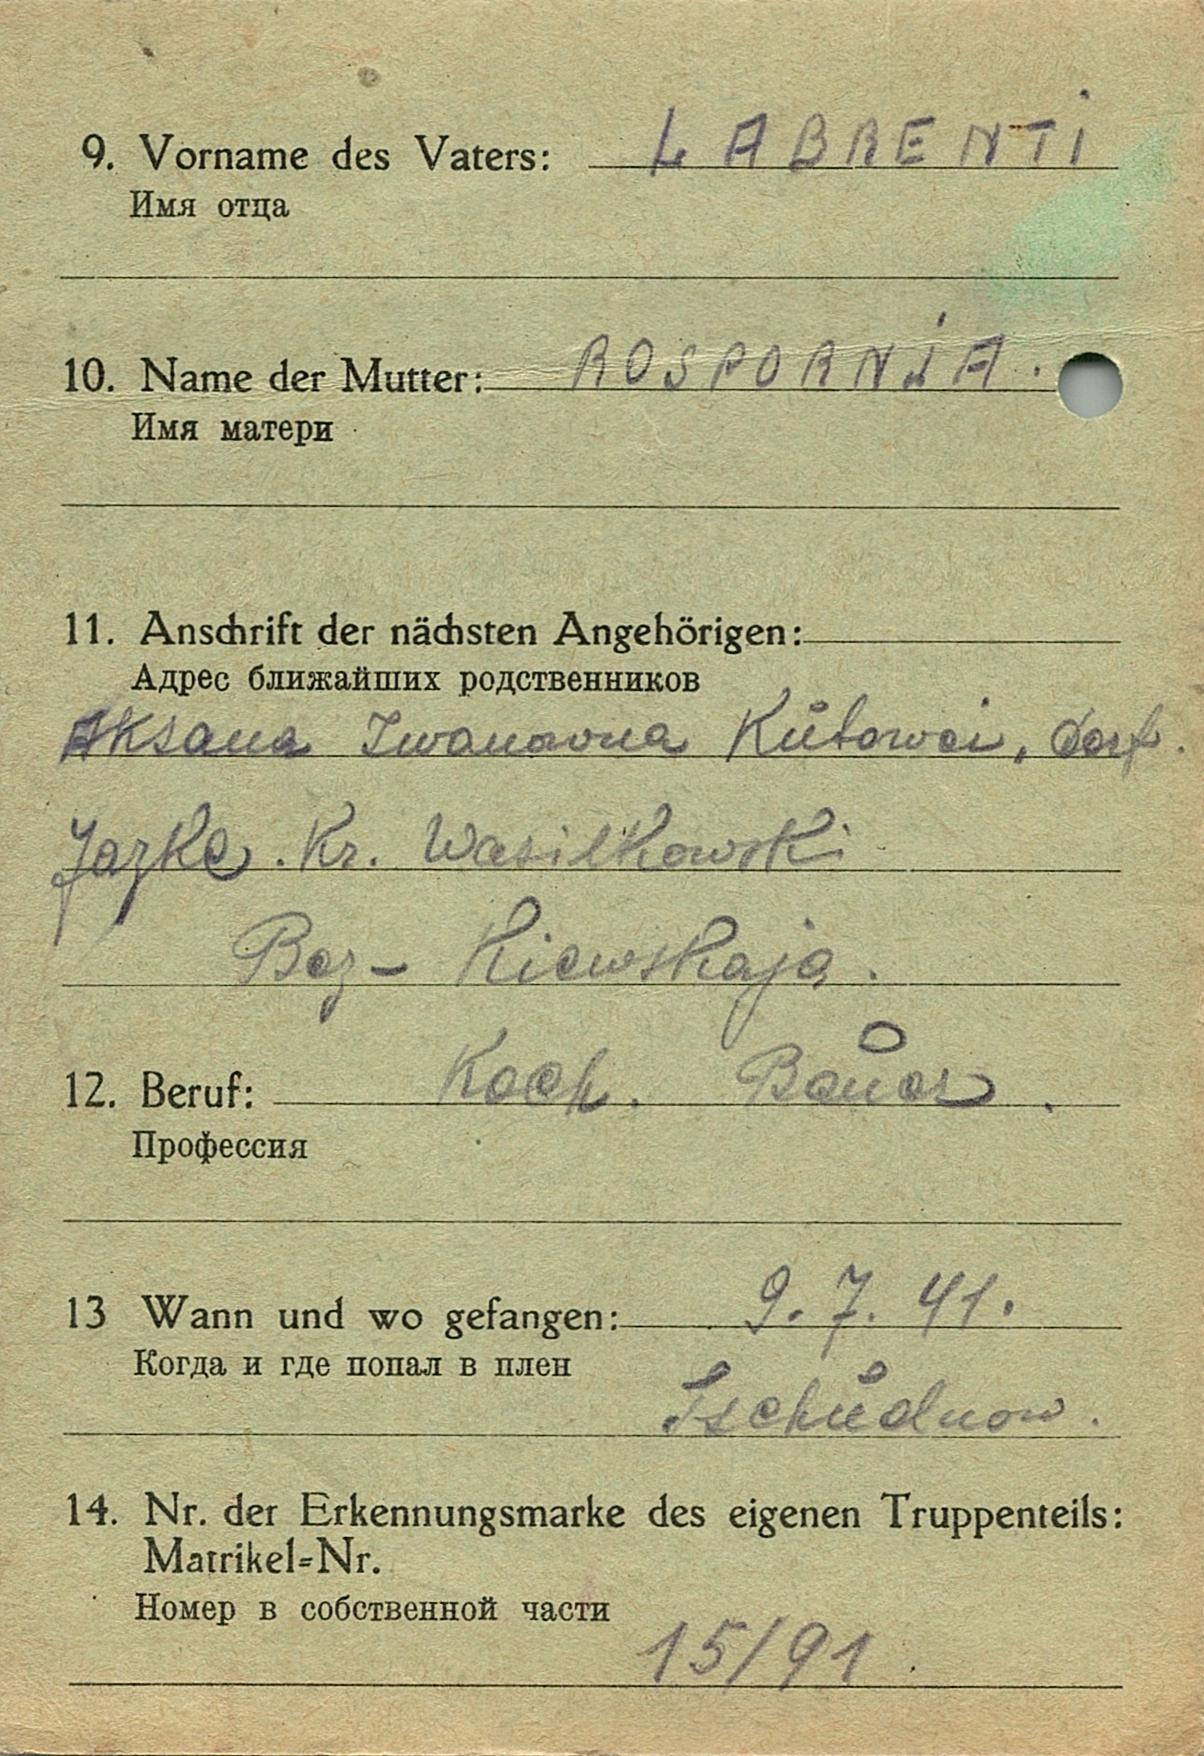 9. Vorname des Vaters: LABRENTI
Имя отца
10. Name der Mutter: ROSPORNIA.
Имя матери
11. Anschrift der nächsten Angehörigen:
Адрес ближайших родственников
Aksana Iwanowna Kutowei, dorf.
Jazke. Kr. Wasilkowski
Bez- Kiewskaja.
12. Beruf: Koch. Bauer.
Профессия
13 Wann und wo gefangen: 9. 7. 41.
Когда и где попал в плен
Tschudnow.
14. Nr. der Erkennungsmarke des eigenen Truppenteils:
Matrikel=Nr.
Номер в собственной части
15/91.